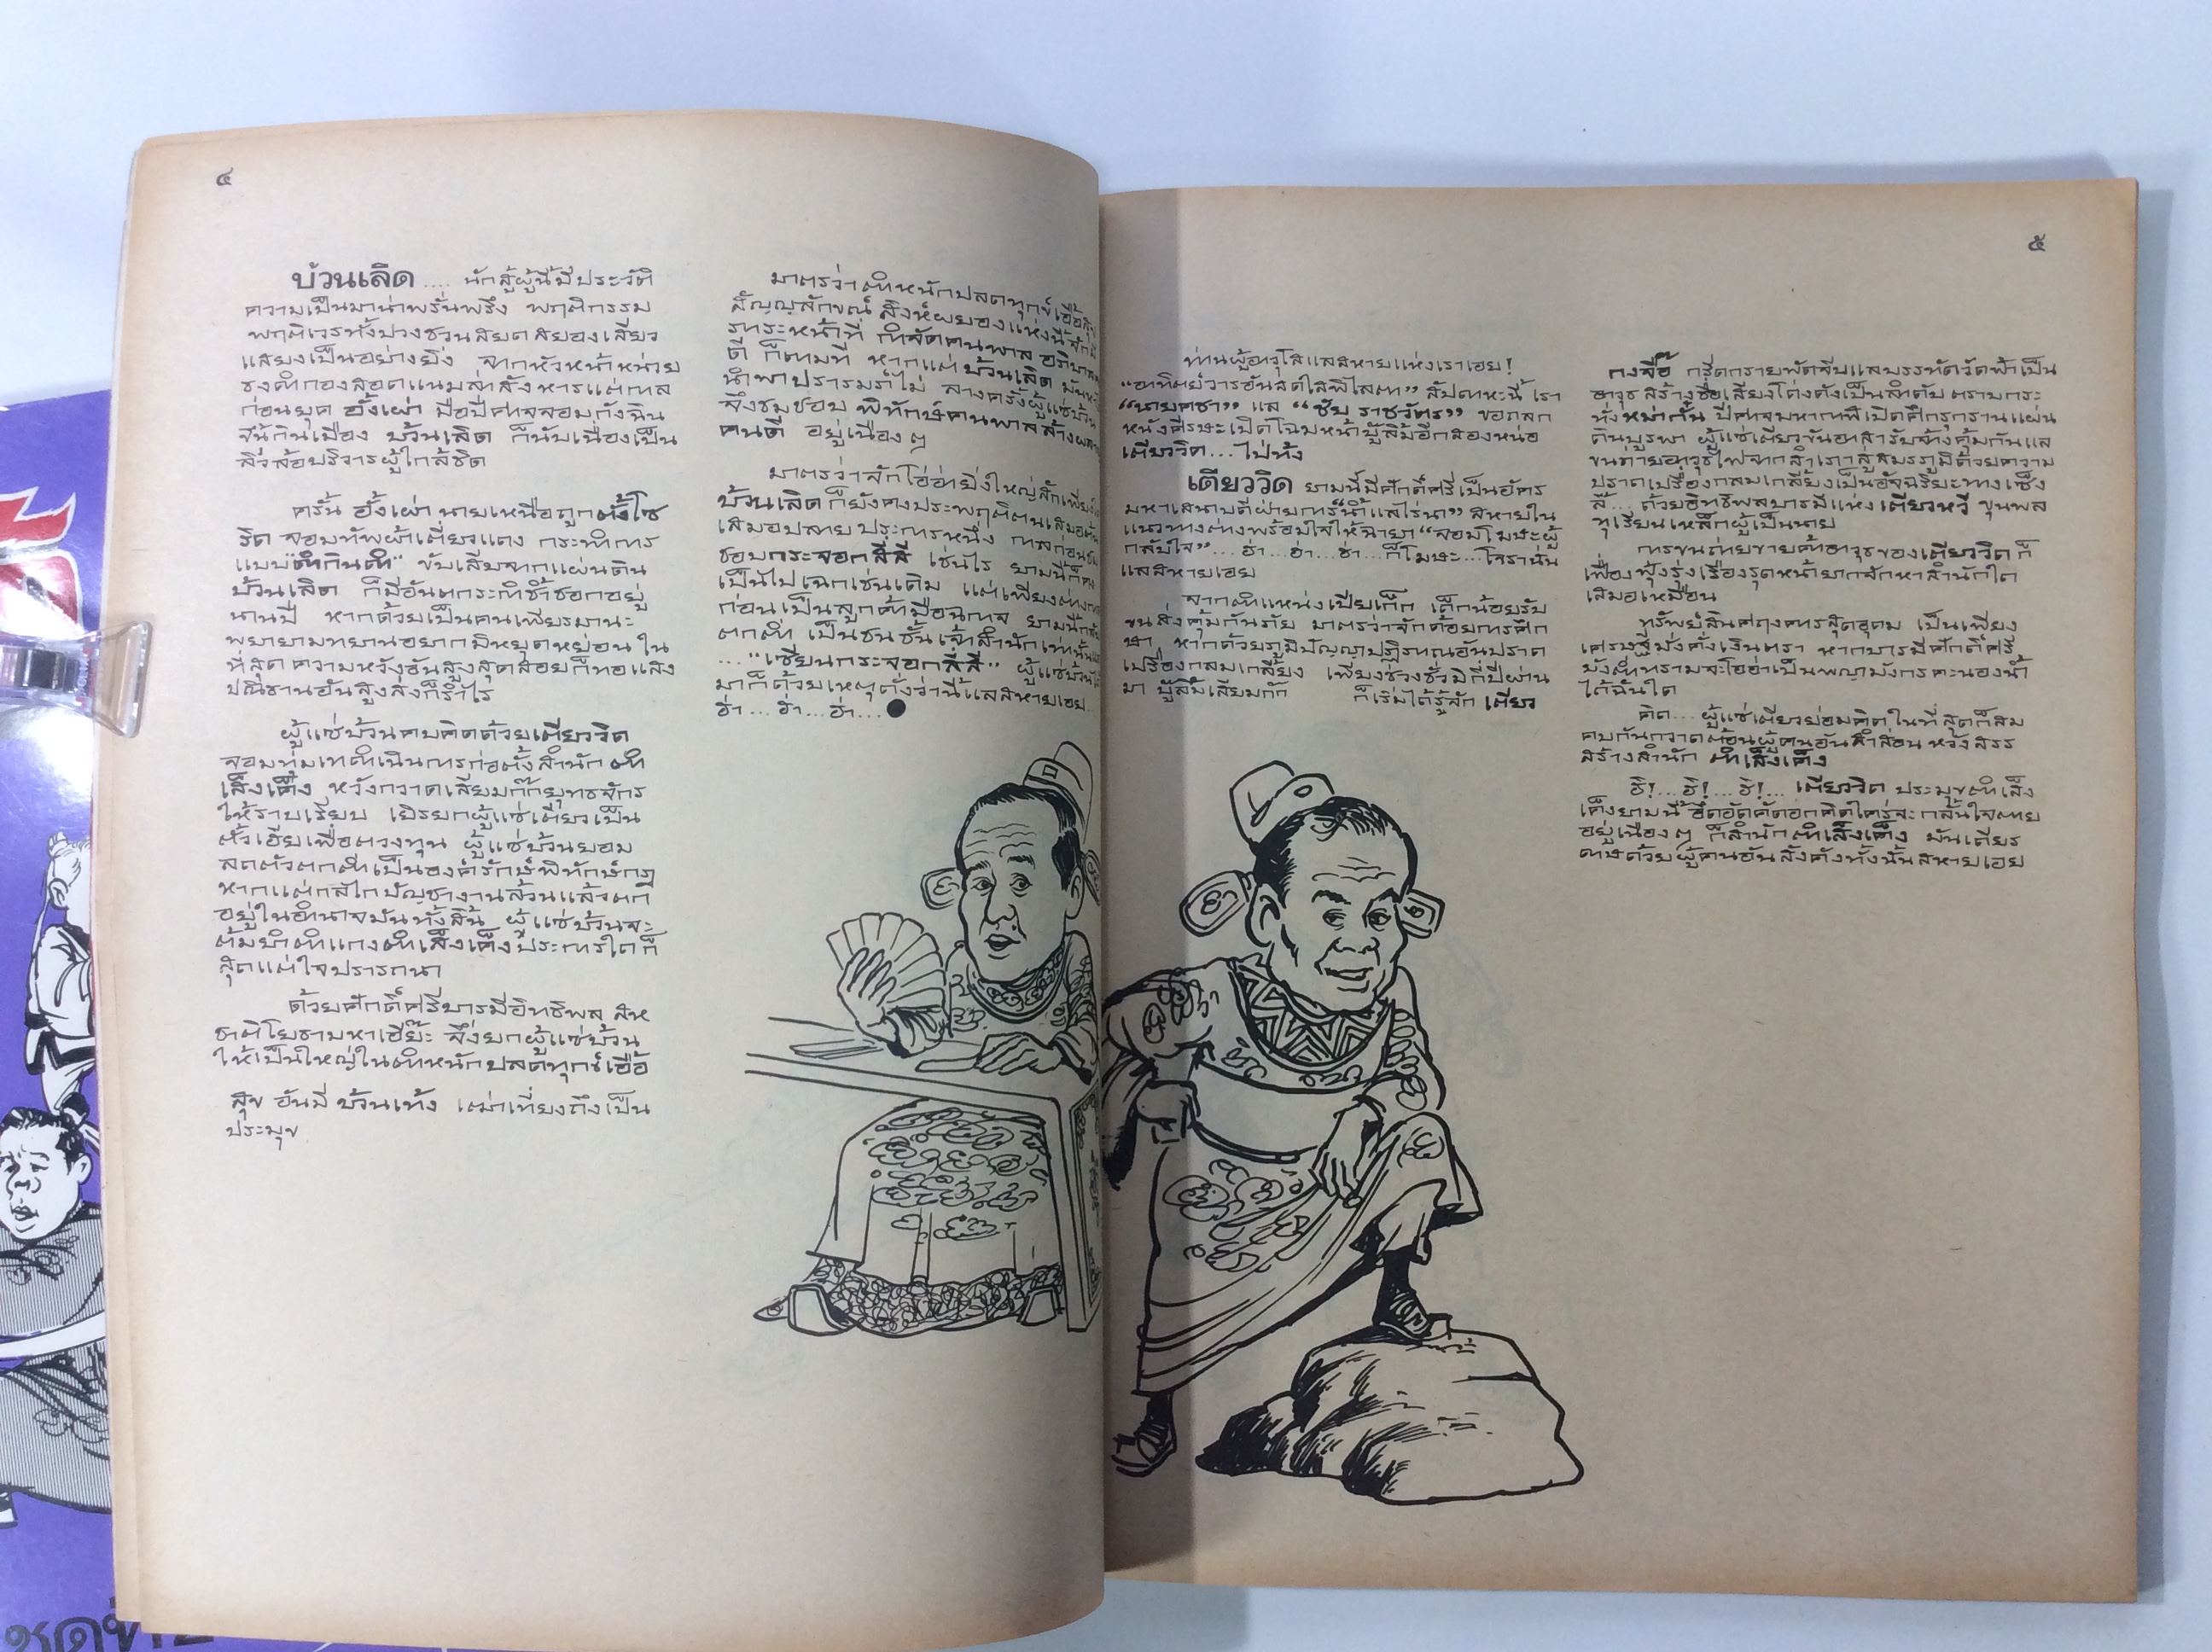 ๔
บ้วนเลิด .... นักสู้ผู้นี้มีประวัติ
ความเป็นมาน่าพรั่นพรึง พฤติกรรม
พฤติเวรทั้งปวงชวนสยดสยองเสียว
แสยงเป็นอย่างยิ่ง จากหัวหน้าหน่วย
ธงดำกองสอดแนมล่าสังหารแต่กาล
ก่อนยุค อั้งเผ่า มือปีศาจจอมกังฉิน
ขี่นั่กินเมือง บ้วนเลิด ก็นับเนื่องเป็น
ลิ่วล้อบริวารผู้ใกล้ชิด
ครั้น อั้งเผ่า นายเหนือถูกตั้งโซ
ริด จอมทัพผ้าเตี่ยวแดง กระทำการ
แบบ"ดำกินดำ" ขับเสียจากแผ่นดิน
บ้วนเลิด ก็มีอันตกระกำช้ำชอกอยู่
นานปี หากด้วยเป็นคนเพียรมานะ
พยายามทยานอยากมิหยุดหย่อน ใน
ที่สุด ความหวังอันสูงสุดสอยก็ทอแสง
ปณิธานอันสูงส่งก็รำไร
ผู้แซ่บ้วนคบคิดด้วยเตียววิด
จอมทุ่มเทดำเนินการก่อตั้งสำนัก ตำ
เส็งเค็ง หวังกวาดเสี่ยมก๊กยุทธจักร
ให้ราบเรียบ เยิรยกผู้แซ่เตียวเป็น
ตั้วเฮียเพื่อตวงทุน ผู้แซ่บ้วนยอม
ลดตัวตกต่ำเป็นองค์รักษ์พิทักษ์กรุ
หากแต่กลไกบัญชางานล้วนแล้วตก
อยู่ในอำนาจมันทั้งสิ้น ผู้แซ่บ้วนจะ
ต้มยำตำแกงตำเส็งเค็งประการใดก็
สุดแต่ใจปรารถนา
ด้วยศักดิ์ศรีบารมีอิทธิพล สห
ชาติโยธามหาเฮียะ จึ่งยกผู้แซ่บ้วน
ให้เป็นใหญ่ในตำหนักปลดทุกข์เอื้อ
สุข อันมี บ้วนเท้ง เฒ่าเที่ยงถึงเป็น
ประมุข
มาตรว่าตำหนักปลดทุกข์เอื้อสุข
สัญญลักขณ์ สิงห์ผยองแห่งนี้จักมี
ภาระหน้าที่ กำจัดคนพาล อภิบาลคน
ดี ก็ตามที หากแต่ บ้วนเลิด มัน
นำพาปรารมภ์ไม่ ลางครั้งผู้แซ่บ้วน
จึงชมชอบ พิทักษ์คนพาลล้างผลาญ
คนดี อยู่เนืองๆ
มาตรว่าจักโอ่อ่ายิ่งใหญ่สักเพียงใด
บ้วนเลิด ก็ยังคงประพฤติตนเสมอต้น
เสมอปลาย ประการหนึ่ง กาลก่อน
ชอบกระจอกสี่สี เช่นไร ยามนี้ก็คง
เป็นไปเฉกเช่นเดิม แต่เพียงต่าง
ก่อนเป็นลูกค้ามือฉกาจ ยามนี้
ตกต่ำ เป็นชนชั้นเจ้าสำนักเท่านั้น
... "เซียนกระจอกสี่สี" ผู้แซ่บ้วนได้
มาก็ด้วยเหตุดั่งว่านี้แลสหายเอย...
ฮ่า ... ฮ่า ... ฮ่า ...
๕
ท่านผู้อาวุโสแลสหายแห่งเราเอย!
"อาทิตย์วารอันสดใสพิไลตา" สัปดาหะนี้ เรา
"นายคชา" แล "ชัย ราชวัตร" ขอถลก
หนังศีรษะเปิดโฉมหน้าบู๊ลิ้มอีกสองหน่อ
เตียววิด...ไปทั้ง
เตียววิด ยามนี้มีศักดิ์ศรีเป็นอัคร
มหาเสนาบดีฝ่ายการ"น้ำแลไร่นา" สหายใน
แนวทางต่างพร้อมใจให้ฉายา "จอมโมษะผู้
กลับใจ"...ฮ่า...ฮ่า...ฮ่า...ก็โมษะ...โจรานั่น
แลสหายเอย
จากตำแหน่งเปียเก็ก เด็กน้อยรับ
ขนส่งคุ้มกันภัย มาตรว่าจักด้อยการศึก
ษา หากด้วยภูมิปัญญาปฏิภาณอันปราด
เปรื่องกลมเกลี้ยง เพียงช่วงชั่วมิกี่ปีผ่าน
มา บู๊ลิ้มเสียมกัก ก็เริ่มได้รู้จัก เตียว
กงจื๊อ กรีดกรายพัดจีบแลบรรทัดวัดฟ้าเป็น
อาวุธ สร้างชื่อเสียงโด่งดังเป็นลำดับ ตราบกระ
ทั่ง หม่ากั้น ปีศาจมหากาฬเปิดศึกรุกรานแผ่น
ดินบูรพา ผู้แซ่เตียวขันอาสารับจ้างคุ้มกันแล
ขนถ่ายอาวุธไฟจากสำเภาสู่สมรภูมิด้วยความ
ปราดเปรื่องกลมเกลี้ยงเป็นอัจฉริยะทางเซ็ง
ลี้... ด้วยอิทธิพลบารมีแห่งเตียวหวี ขุนพล
ทุเรียนเหล็กผู้เป็นนาย
การขนถ่ายขายค้าอาวุธของเตียววิด ก็
เฟื่องฟุ้งรุ่งเรืองรุดหน้ายากจักหาสำนักใด
เสมอเหมือน
ทรัพย์สินศฤงคารสุดอุดม เป็นเพียง
เศรษฐีมั่งคั่งเงินตรา หากบารมีศักดิ์ศรี
ยังต่ำทรามจะโอ่อ่าเป็นพญามังกรคะนองน้ำ
ได้ฉันใด
คิด... ผู้แซ่เตียวย่อมคิด ในที่สุดก็สม
คบกันกวาดต้อนผู้คนอันล่ำสอน หวังสรร
สร้างสำนัก ตำเส็งเค็ง
ฮิ!...ฮิ!...ฮิ!... เตียววิด ประมุขตำเส็ง
เค็งยามนี้ อึดอัดคัดอกคิดใคร่จะกลั้นใจตาย
อยู่เนืองๆ ก็สำนัก ตำเส็งเค็ง มันเดียร
ดาษด้วยผู้คนอันสั่งคังทั้งนั้นสหายเอย